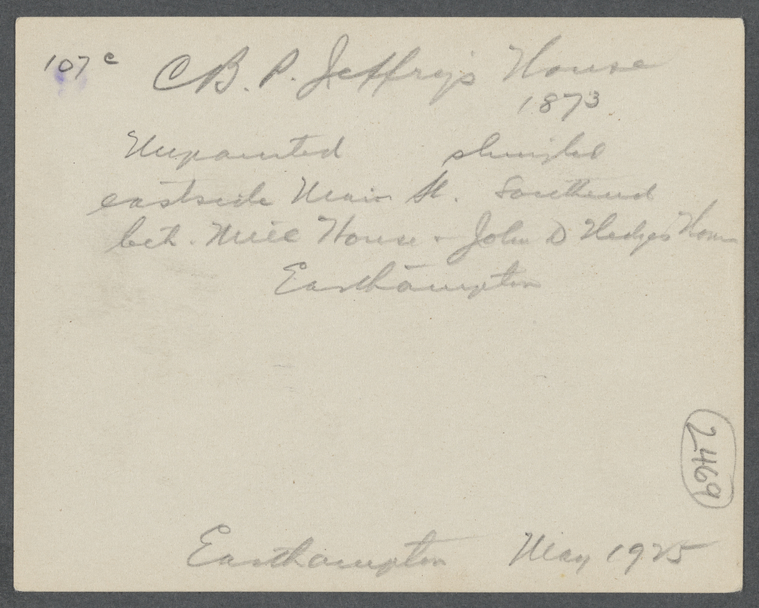 107c C B. P. Jeffrys House
1873
Unpainted shingled
eastside Main St. Southend
bet. Mill House + John D Hedges House
Easthampton
2469
Easthampton May 1925